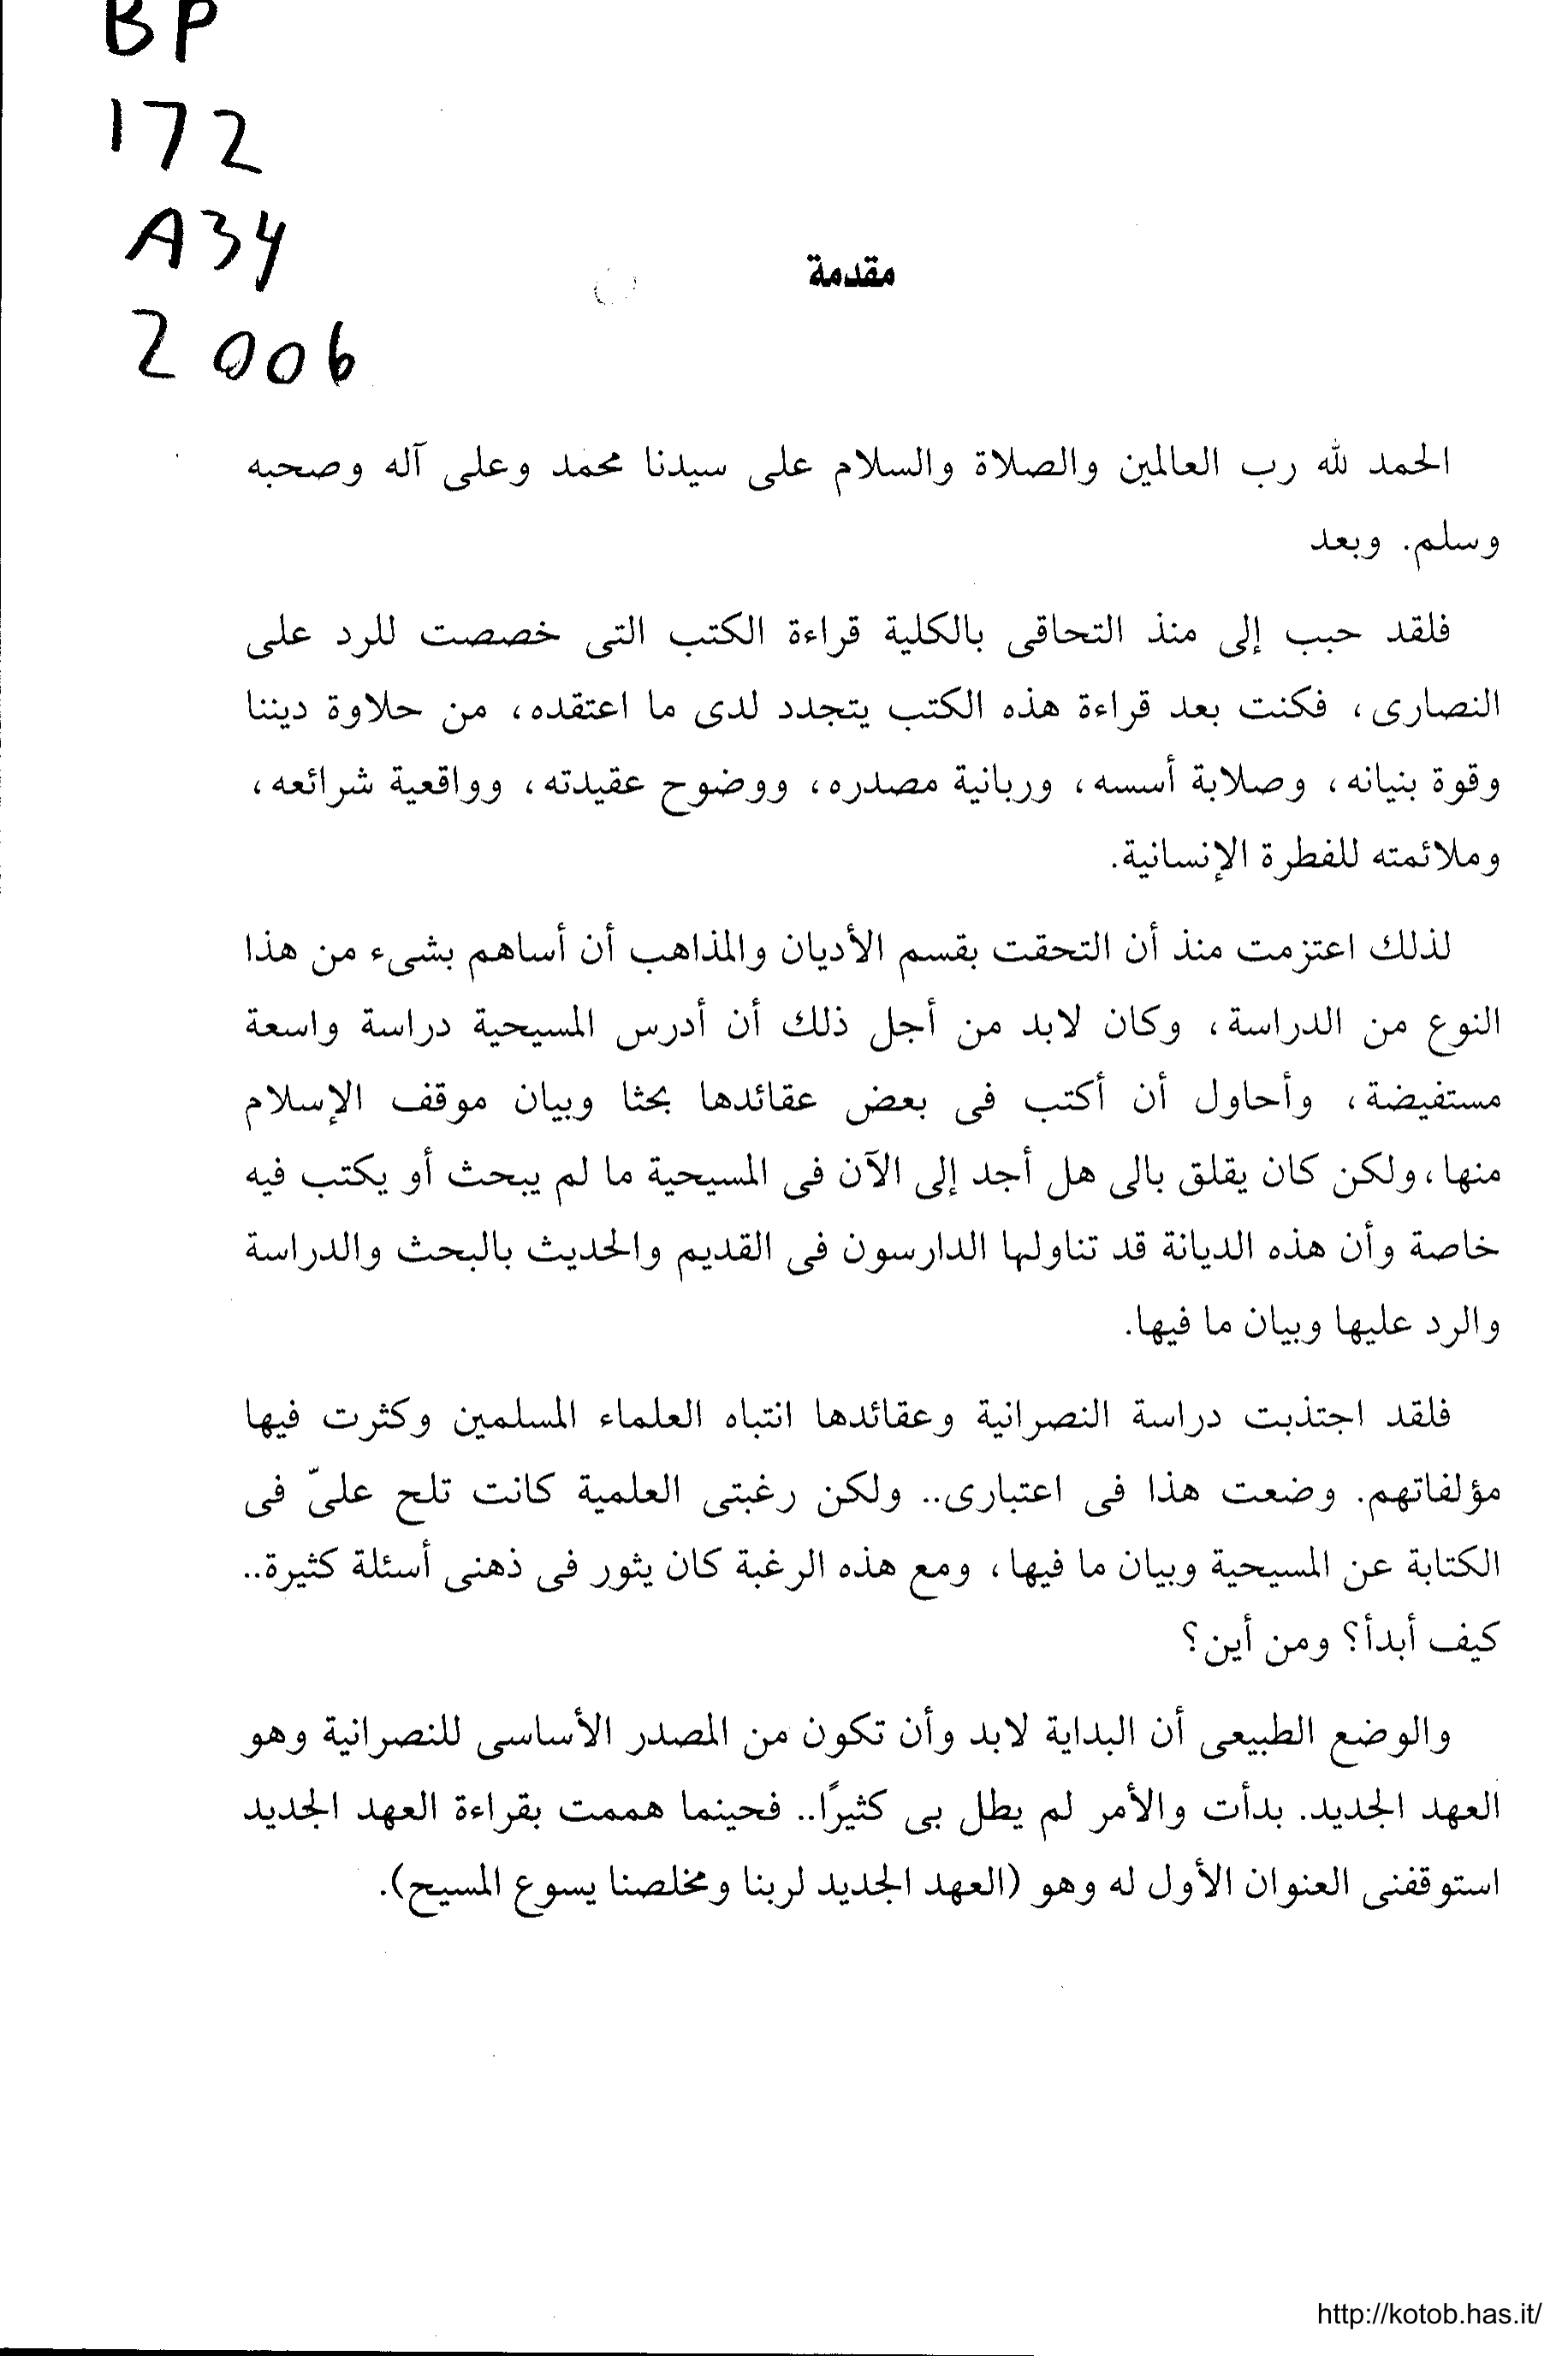 BP
172
A34
2006
مقدمة
الحمد لله رب العالمين والصلاة والسلام على سيدنا محمد وعلى آله وصحبه
وسلم. وبعد
فلقد حبب إلى منذ التحاقى بالكلية قراءة الكتب التى خصصت للرد على
النصارى، فكنت بعد قراءة هذه الكتب يتجدد لدى ما اعتقده، من حلاوة ديننا
وقوة بنيانه، وصلابة أسسه، وربانية مصدره، ووضوح عقيدته، وواقعية شرائعه،
وملائمته للفطرة الإنسانية.
لذلك اعتزمت منذ أن التحقت بقسم الأديان والمذاهب أن أساهم بشىء من هذا
النوع من الدراسة، وكان لابد من أجل ذلك أن أدرس المسيحية دراسة واسعة
مستفيضة، وأحاول أن أكتب فى بعض عقائدها بحثا وبيان موقف الإسلام
منها، ولكن كان يقلق بالى هل أجد إلى الآن فى المسيحية ما لم يبحث أو يكتب فيه
خاصة وأن هذه الديانة قد تناولها الدارسون فى القديم والحديث بالبحث والدراسة
والرد عليها وبيان ما فيها.
فلقد اجتذبت دراسة النصرانية وعقائدها انتباه العلماء المسلمين وكثرت فيها
مؤلفاتهم. وضعت هذا فى اعتبارى.. ولكن رغبتى العلمية كانت تلح علىّ فى
الكتابة عن المسيحية وبيان ما فيها، ومع هذه الرغبة كان يثور فى ذهنى أسئلة كثيرة..
كيف أبدأ؟ ومن أين؟
والوضع الطبيعى أن البداية لابد وأن تكون من المصدر الأساسى للنصرانية وهو
العهد الجديد. بدأت والأمر لم يطل بى كثيرًا.. فحينما هممت بقراءة العهد الجديد
استوقفنى العنوان الأول له وهو (العهد الجديد لربنا ومخلصنا يسوع المسيح).
http://kotob.has.it/